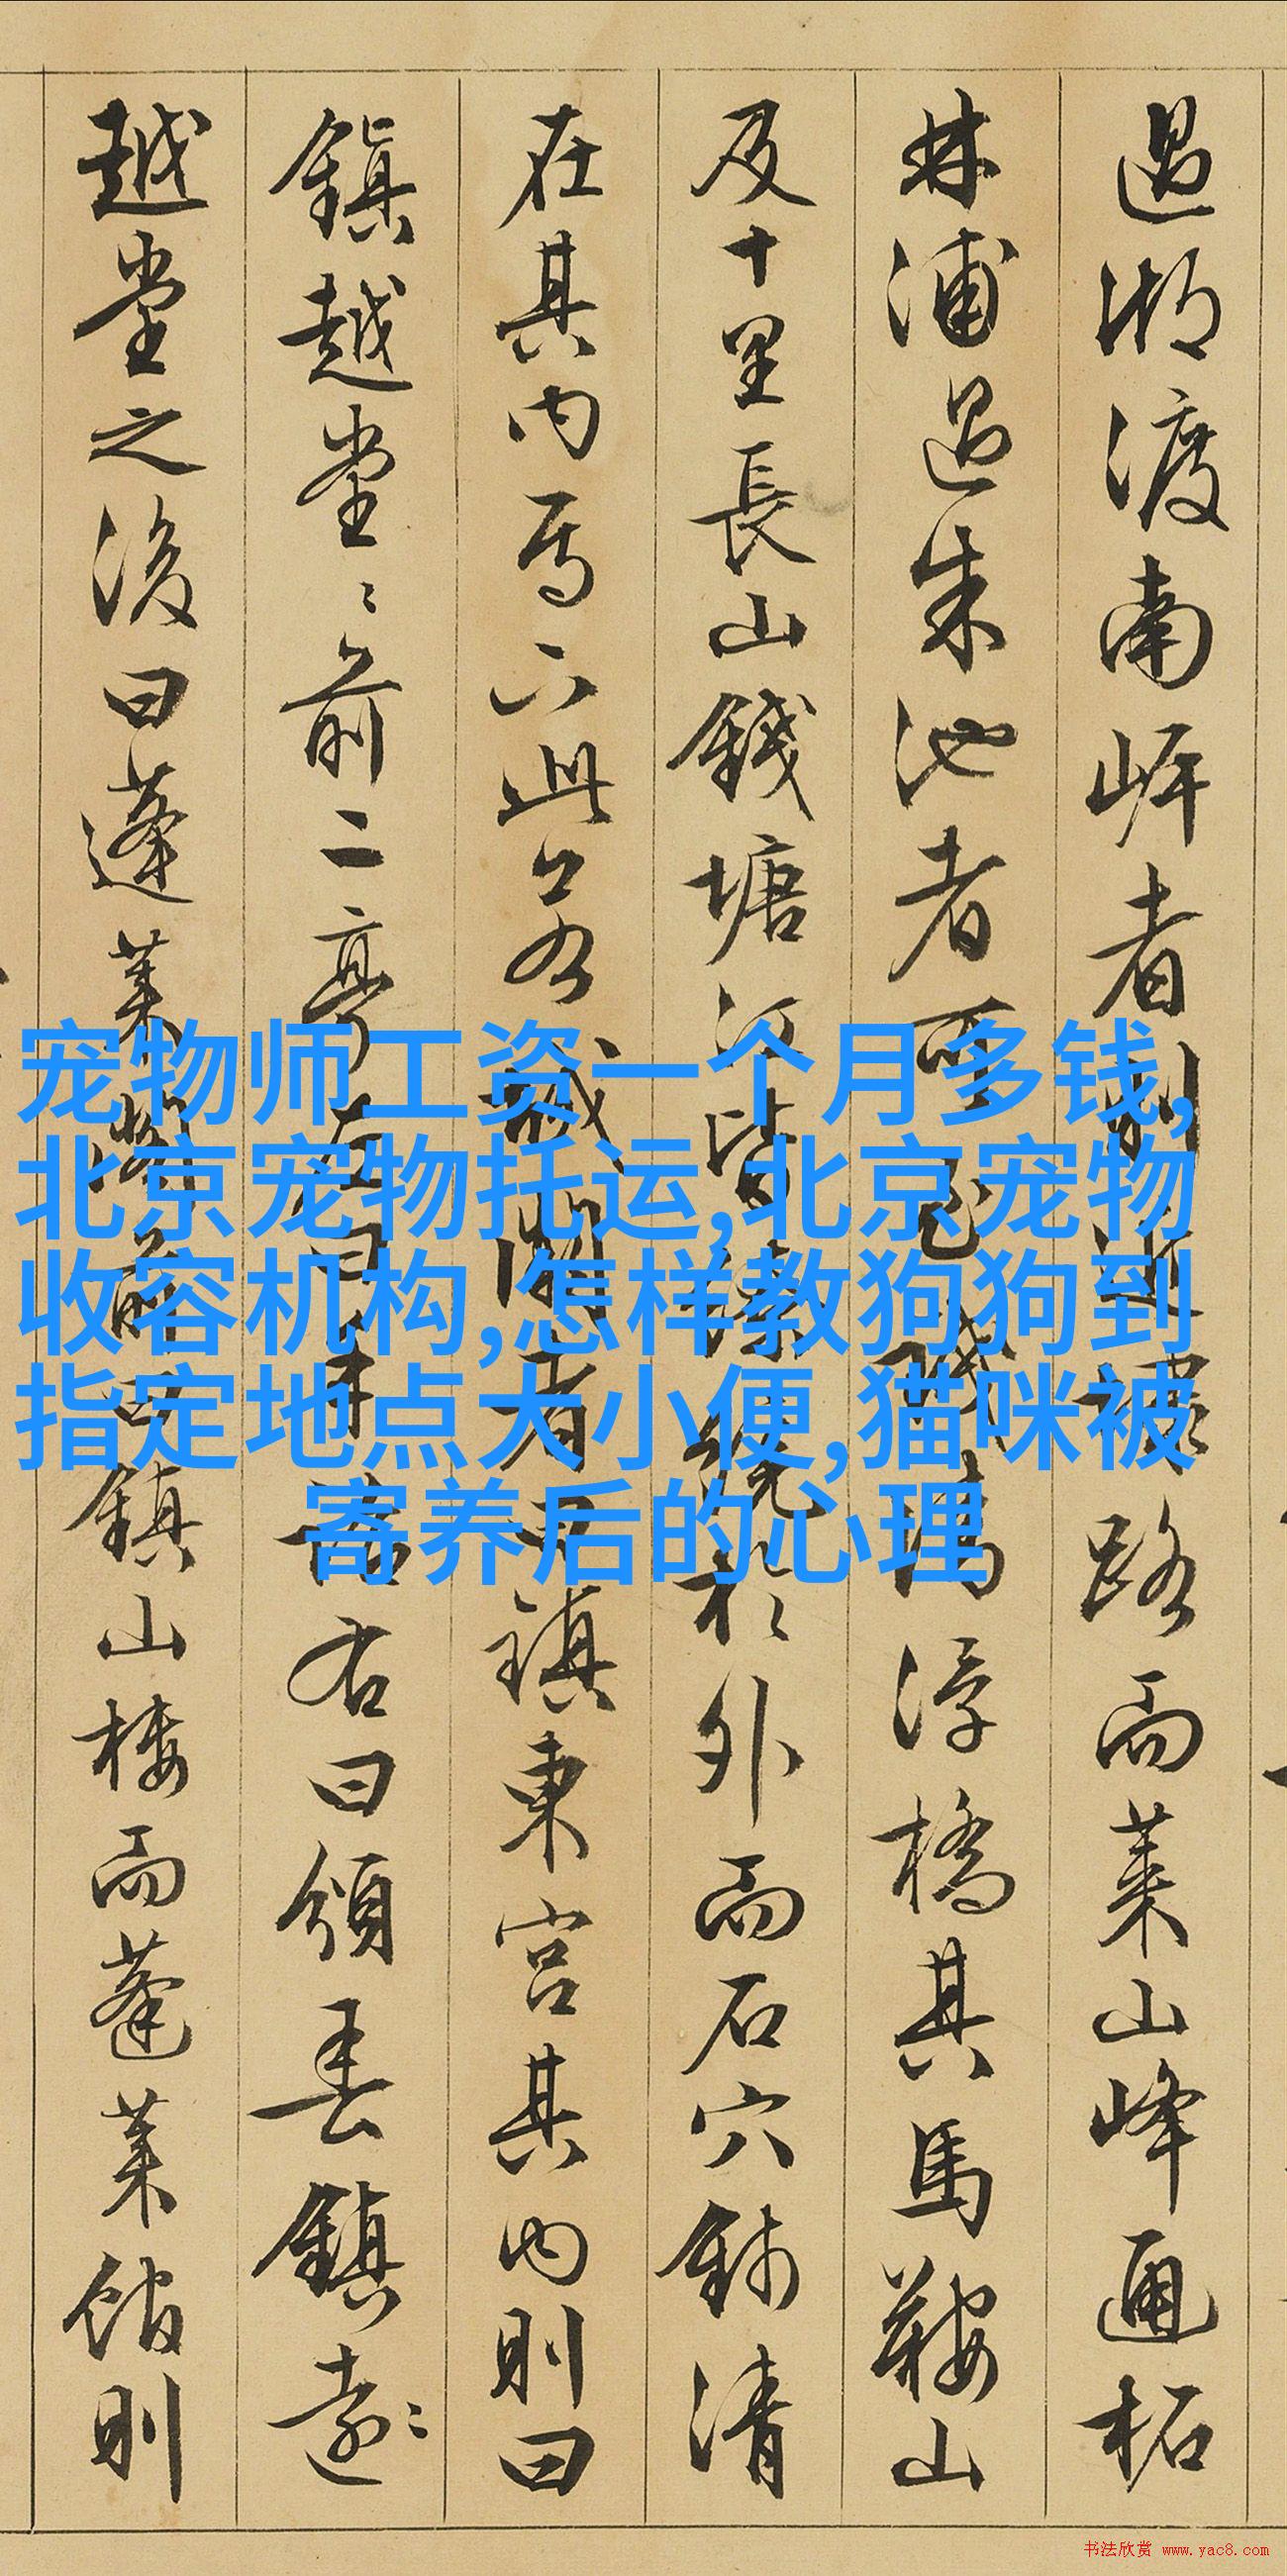 過湖渡南岸者則近裡路而萊山峰通柘
林浦過朱池者西
浮橋其馬鞍山
及十里長山錢塘江皆
於外而石穴
清
在其内焉六此
城闉者
鎮東宮其内則曰
鎮越堂〻前二亭左曰
右曰領
鎮遠〻
越堂之後曰蓬萊
前曰鎮山樓而蓬萊館則
宠物师工资一个月多钱,
北京宠物托运,北京宠物
收容机构,怎样教狗狗到
指定地点大小便,猫咪被
寄养后的心理
书法欣赏 www.yac8.com